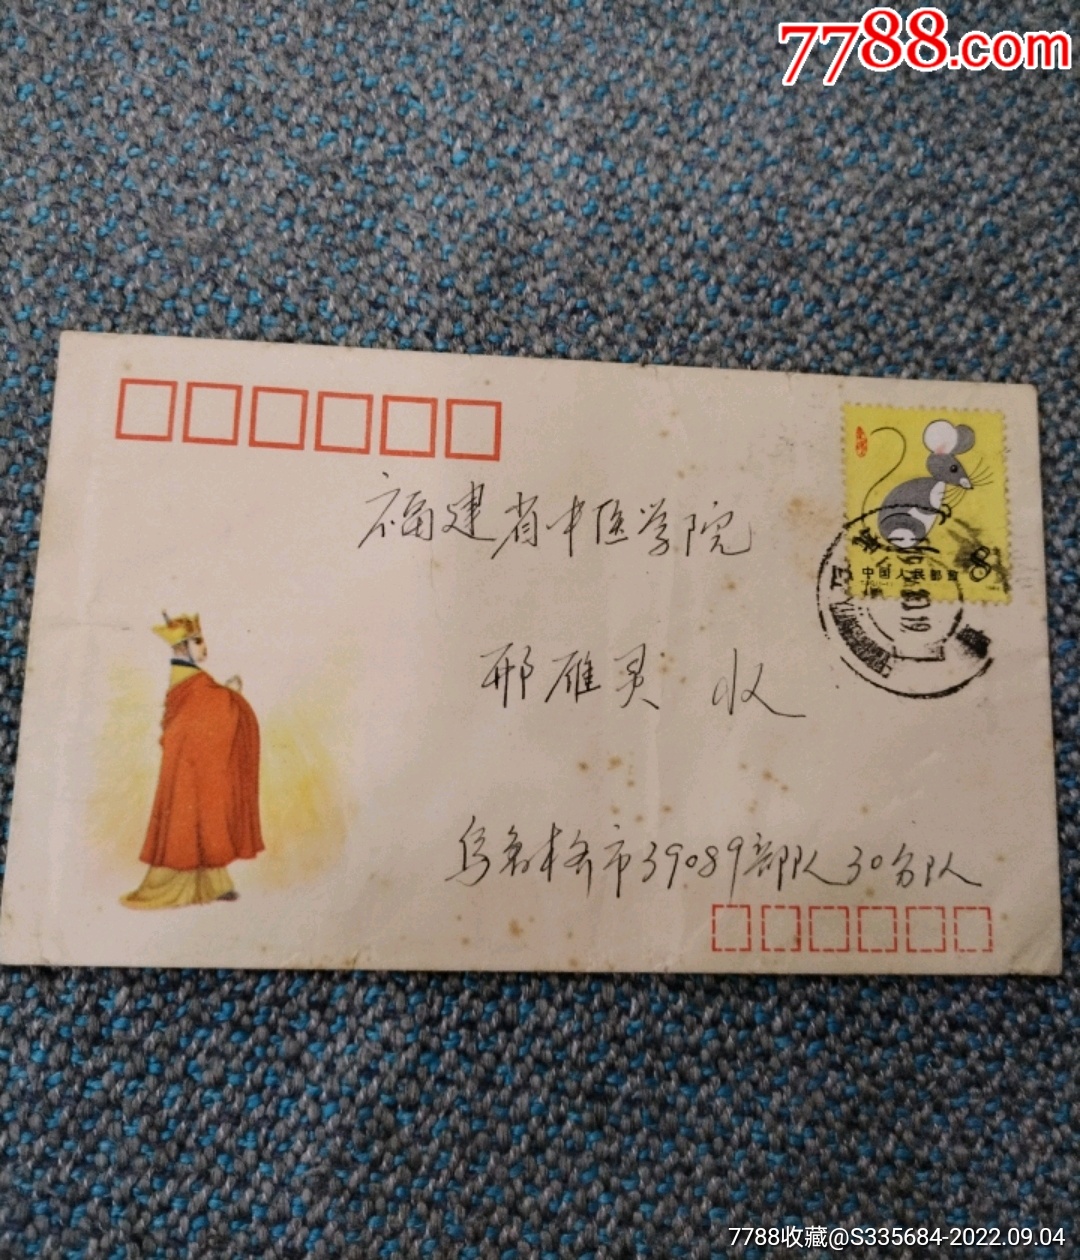 7788.com
中国人民邮政
8
福建省中医学院
邢雁灵 收
乌鲁木齐市39089部队30分队
7788收藏@S335684-2022.09.04